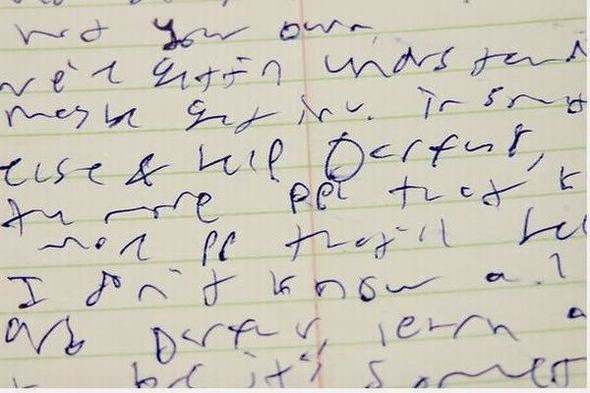 not your own
understand
maybe get inv. in som
else & help Darfur,
the more ppl that k
more pp they'll hel
I don't know al
are Darfur, learn a
it's somet